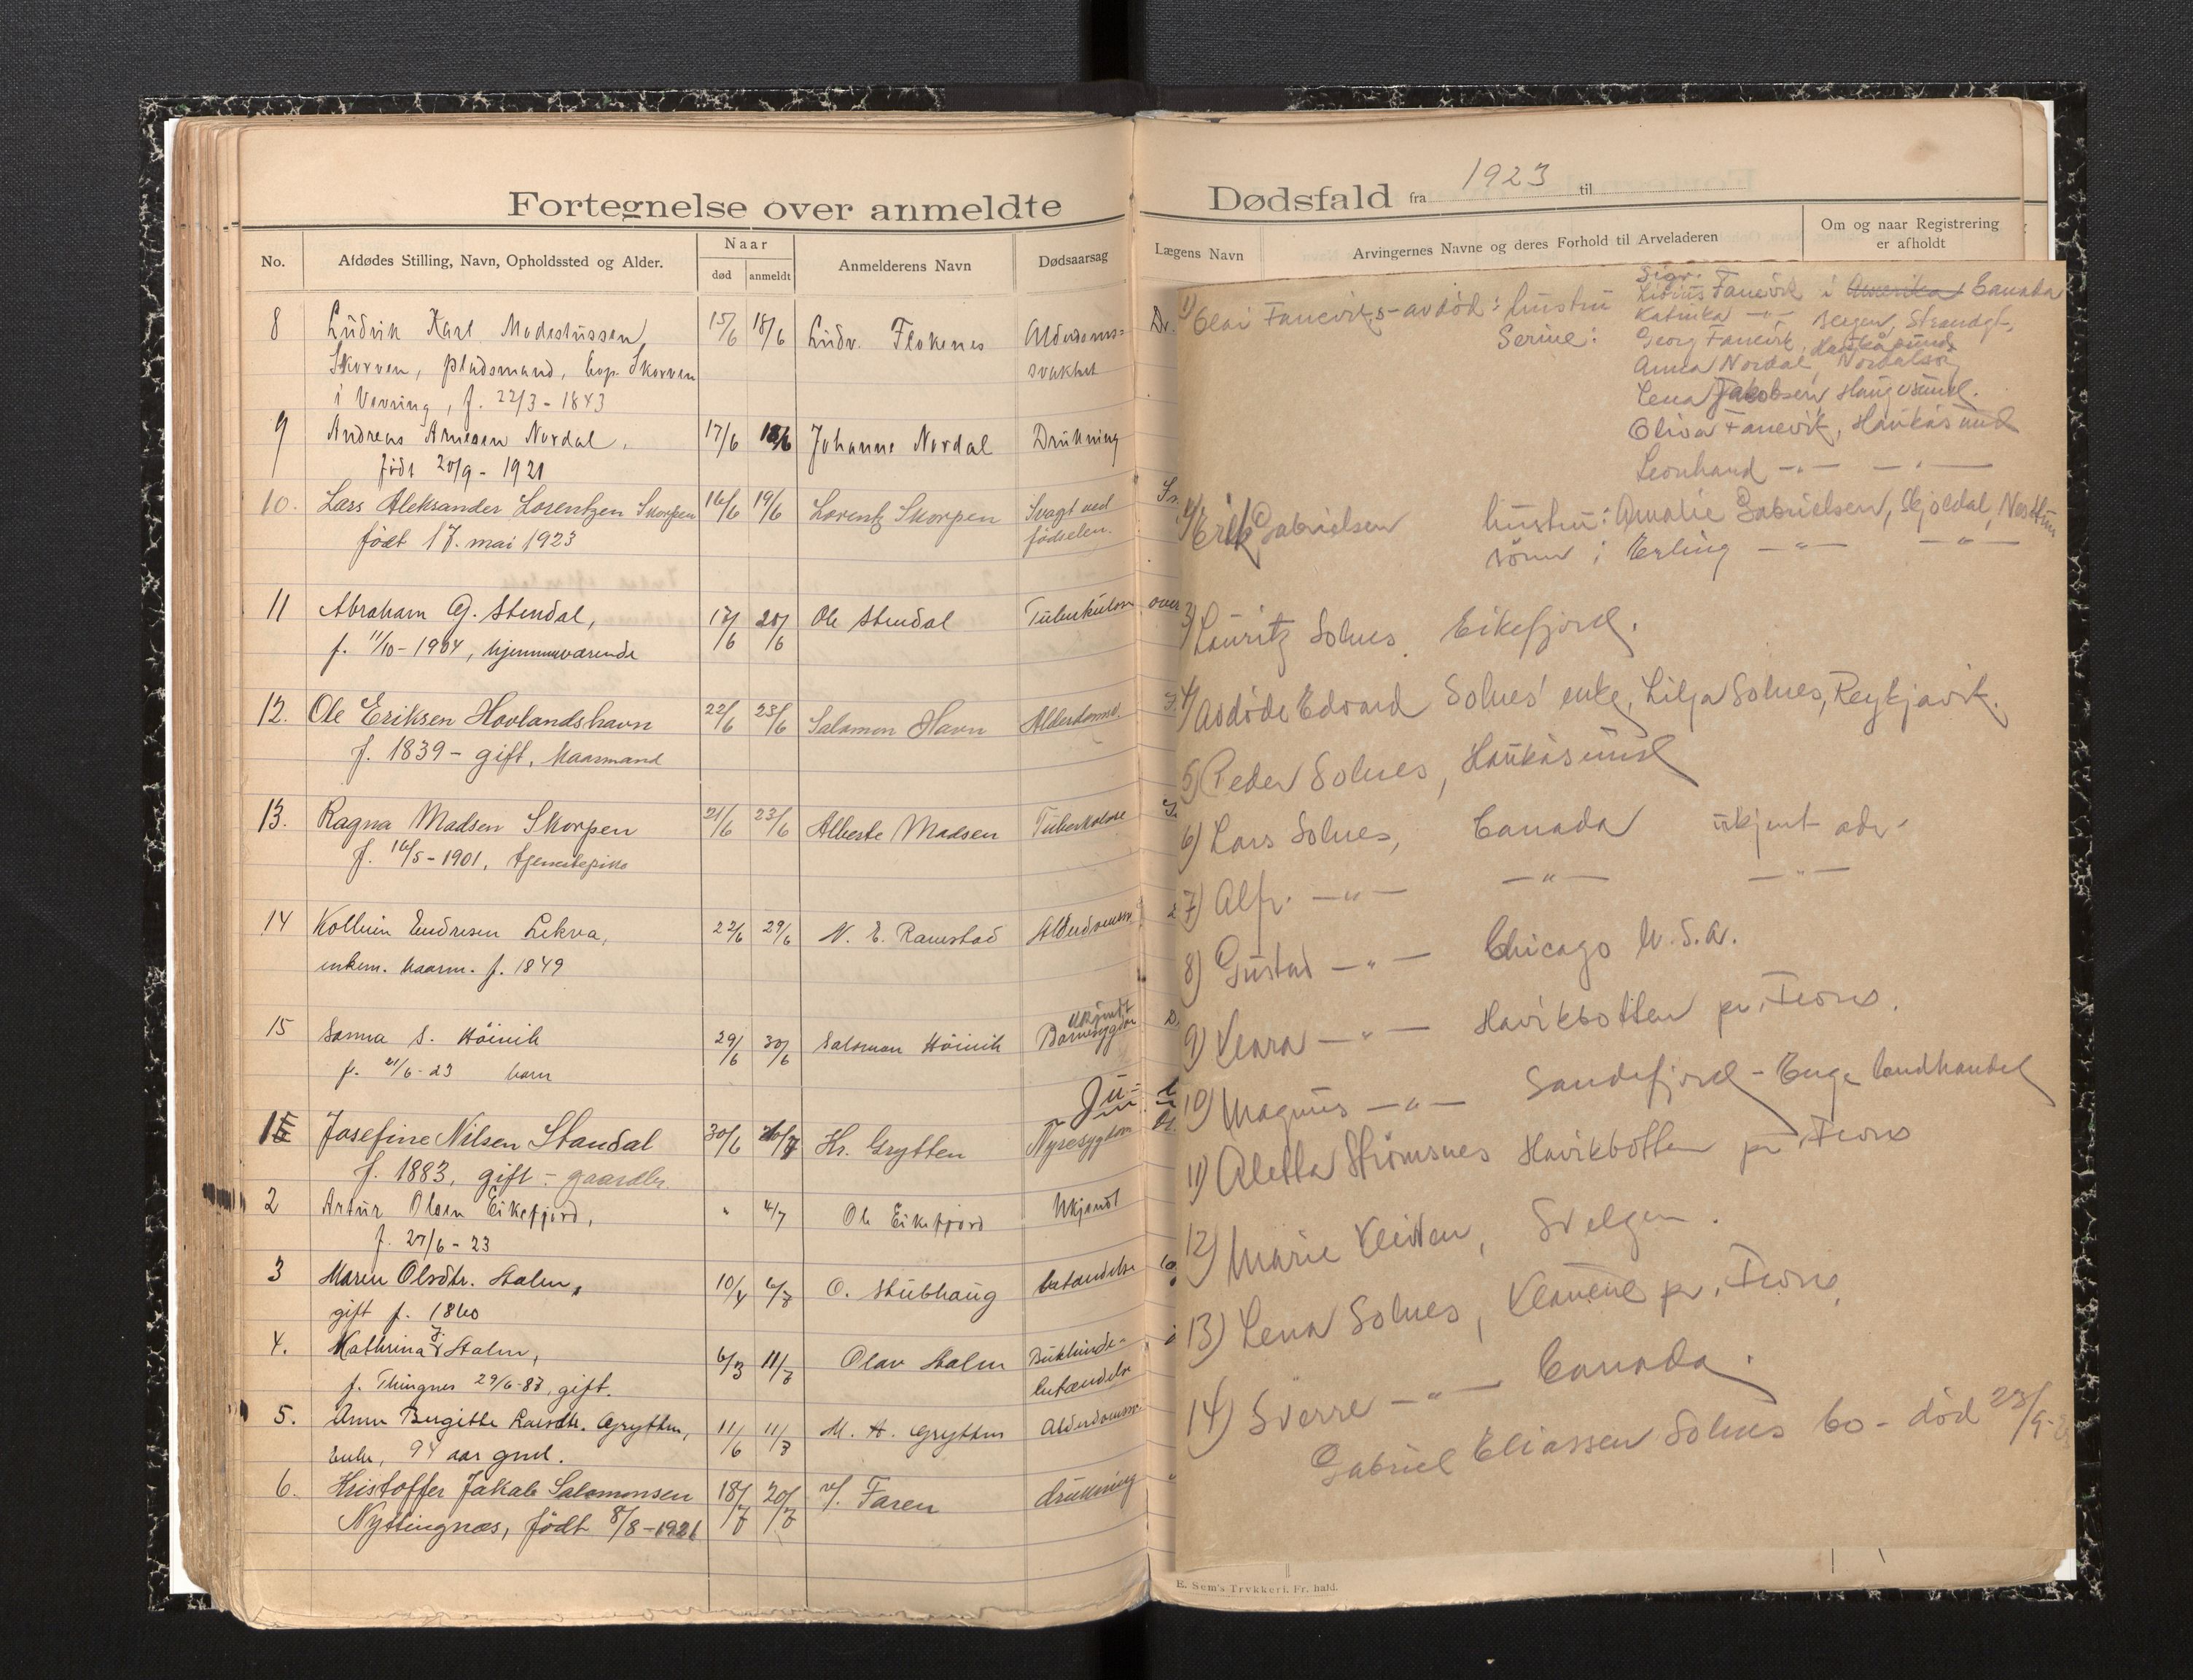 Fortegnelse over anmeldte
No.
Afdødes Stilling, Navn, Opholdssted og Alder.
Naar
død
anmeldt
Anmelderens Navn
Dødsaarsag
8 Ludvik Karl Modestussen 15/6 18/6 Ludv. Flokenes Alderdoms-
Skorven, pladsmand, svakhet
i Vevring, f. 22/3 - 1843
9 Andreas Arnesen Nordal. 17/6 18/6 Johanne Nordal Drukning
født 20/9 - 1921
10. Lars Aleksander Lorentzen Skorpen 16/6 19/6 Lorentz Skorpen Svagt ved
født 17. mai 1923 fødselen.
11 Abraham G. Stendal, 17/6 20/6 Ole Stendal Tuberkulose
f. 11/10 - 1904, hjemmeværende
12. Ole Eriksen Hovlandshavn 22/6 23/6 Salamon Havn
f. 1839 - gift, kaarmand
13. Ragna Madsen Skorpen 21/6 23/6 Alberte Madsen Tuberkolose
f. 16/5 - 1901,
14 Kolbein Endresen Lekva, 22/6 29/6 N. E. Ramstad
enkem. kaarm. f. 1849
15 Sanna S. Höivik 29/6 30/6 Salomon Höivik ukjendt
f. 21/6 - 23 barn Barnesygdom
Ju-
1 Josefine Nilsen Standal 30/6 Kr. Grytten Nyresygdom
f. 1883, gift - gaardbr.
2 Artur Olsen Eikefjord, " 4/7 Ole Eikefjord Ukjendt
f. 27/6 - 23
3 Maren Olsdtr. Stalm, 10/4 6/7 O. Stubhaug betændelse
gift f. 1860
4. Kathrina J. Stalm, 6/3 11/7 Olav Stalm Bukhinde-
f. Thingnes 29/6-87, gift. betændelse
5. Anne Birgitte Larsdtr. Grytten, 11/6 11/7 M. A. Grytten
Enke, 94 aar gml.
6. Kristoffer Jakob Salomonsen 18/7 20/7 v/. Faren drukning
Nyttingnæs, født 8/8 - 1921
Dødsfald fra 1923 til
Lægens Navn
Arvingernes Navne og deres Forhold til Arveladeren
Om og naar Registrering
er afholdt
Dr.
Sigv.
1) Olai Fanevik,s - avdöd: hustru Fanevik i Amerika Canada
Katinka -"- Bergen, Strandgt,
Serine: Georg Fanevik, Haukåsund
Anna Nordal, Nordalsöi
Lena Jakobsen Haugesund.
Olivia Fanevik, Haukåsund
Leonhard -"- -"-
2) Erik Gabrielsen hustru: Amalie Gabrielsen, Skjoldal, Nesttun
sönn: Erling -"- -"-
3) Lauritz Solnes, Eikefjord.
4) Avdöde Edvard Solnes' enke, Lilja Solnes, Reykjavik.
5) Peder Solnes, Haukåsund
6) Lars Solnes, Canada ukjent adr.
7) Alfr. -"- -"- -"-
8) Gustav -"- Chicago U.S.A.
9) Klara -"- Havikbotten pr. Florö.
10) Magnus -"- Sandefjord - Enge landhandel
11) Aletta Strömsnes Havikbotten pr. Florö
12) Marie Kleiven, Svelgen.
13) Lena Solnes, Klavene pr. Florö,
14) Sverre -"- Canada.
Gabriel Eliassen Solnes bo - död 23/9-
E. Sem's Trykkeri, Fr. hald.